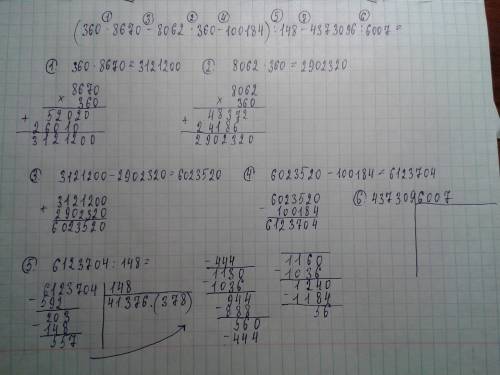 ① ③ ② ④ ⑤ ⑦ ⑥
(360 · 8670 - 8062 · 360 - 100184) : 148 - 4373096 : 6007 =
① 360 · 8670 = 3121200
8670
× 360
52020
+ 26010
3121200
② 8062 · 360 = 2902320
8062
× 360
48372
+ 24186
2902320
③ 3121200 - 2902320 = 6023520
3121200
+ 2902320
6023520
④ 6023520 - 100184 = 6123704
6023520
- 100184
6123704
⑤ 6123704 : 148 =
6123704 148
- 592 41376.(378)
203
- 148
557
- 444
1130
- 1036
944
- 888
560
- 444
1160
- 1036
1240
- 1184
56
⑥ 437309 6007